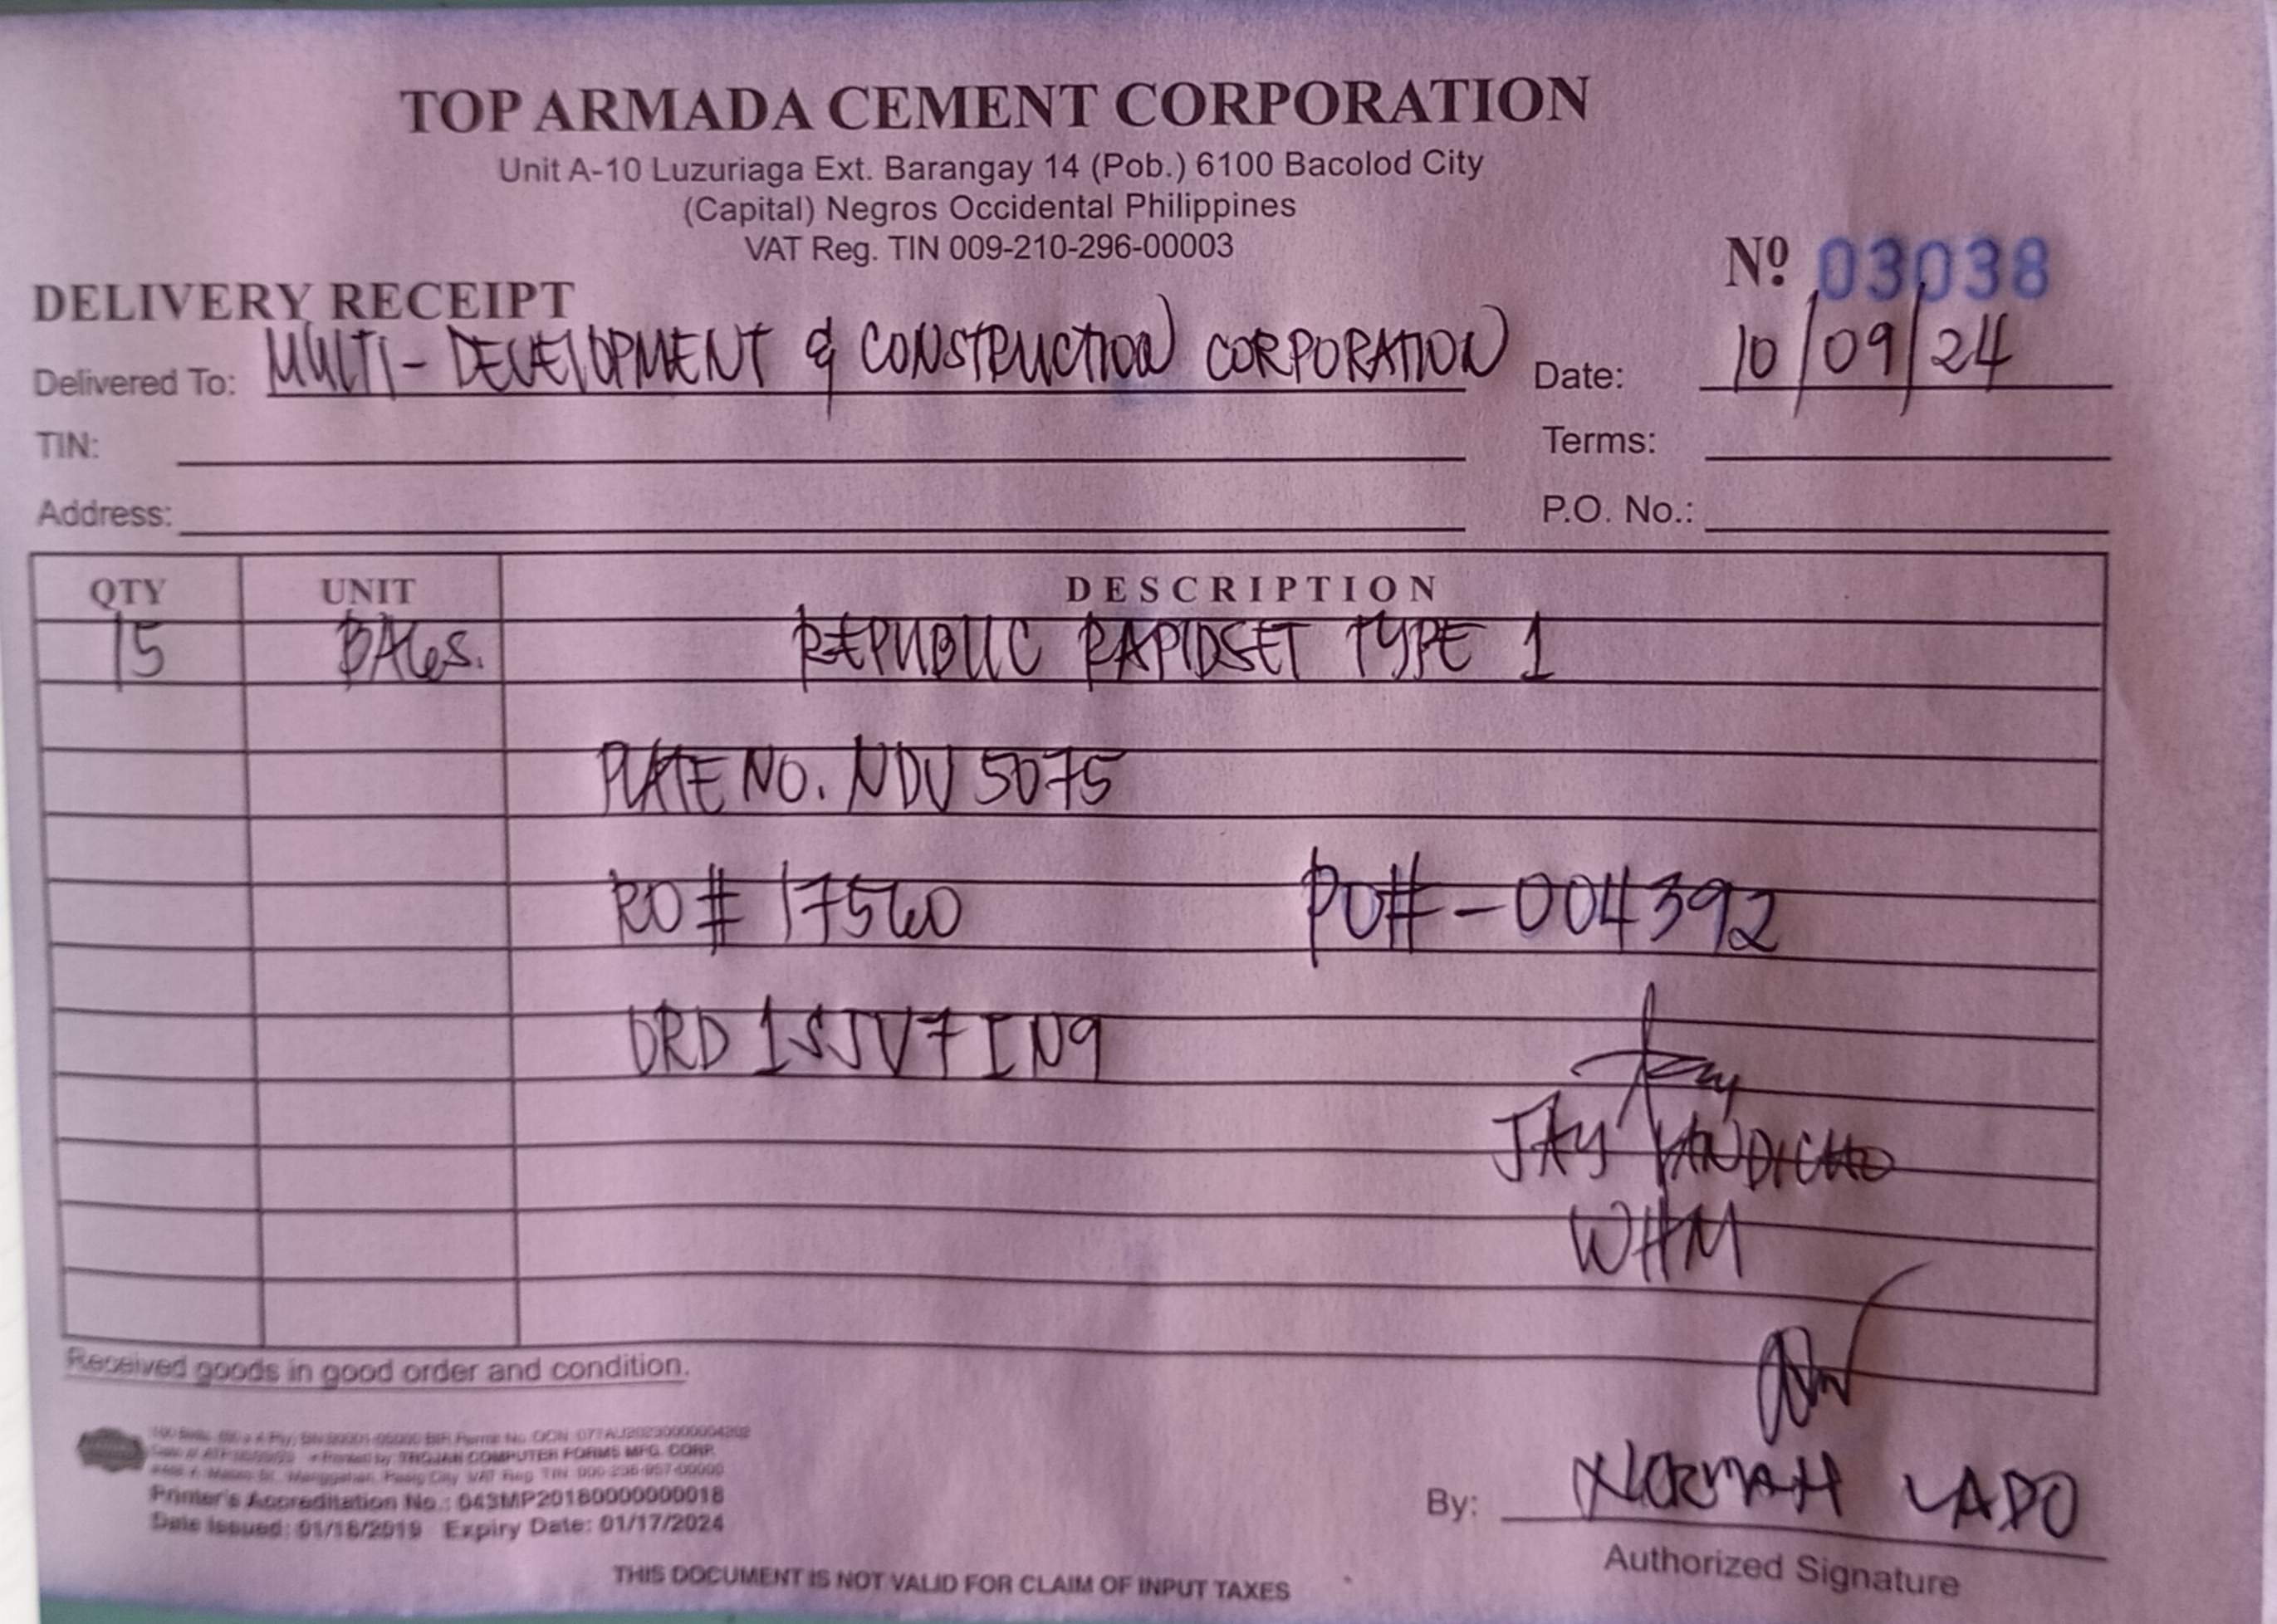 TOP ARMADA CEMENT CORPORATION
Unit A-10 Luzuriaga Ext. Barangay 14 (Pob.) 6100 Bacolod City
(Capital) Negros Occidental Philippines
VAT Reg. TIN 009-210-296-00003
Nº 03038
DELIVERY RECEIPT
Delivered To: MULTI-DEVELOPMENT & CONSTRUCTION CORPORATION Date: 10/09/24
TIN: Terms:
Address: P.O. No.:
QTY UNIT DESCRIPTION
15 BAGS. REPUBLIC RAPIDSET TYPE 1
PLATE NO. NDV 5075
RO # 17560 PO# -004392
DRD 1SJV7IN9
JAY
WHM
Received goods in good order and condition.
TROJAN COMPUTER FORMS MFG. CORP.
Printer's Accreditation No.: 043MP20180000000018
Date Issued: 01/18/2019 Expiry Date: 01/17/2024
By: NORMAN LADO
Authorized Signature
THIS DOCUMENT IS NOT VALID FOR CLAIM OF INPUT TAXES